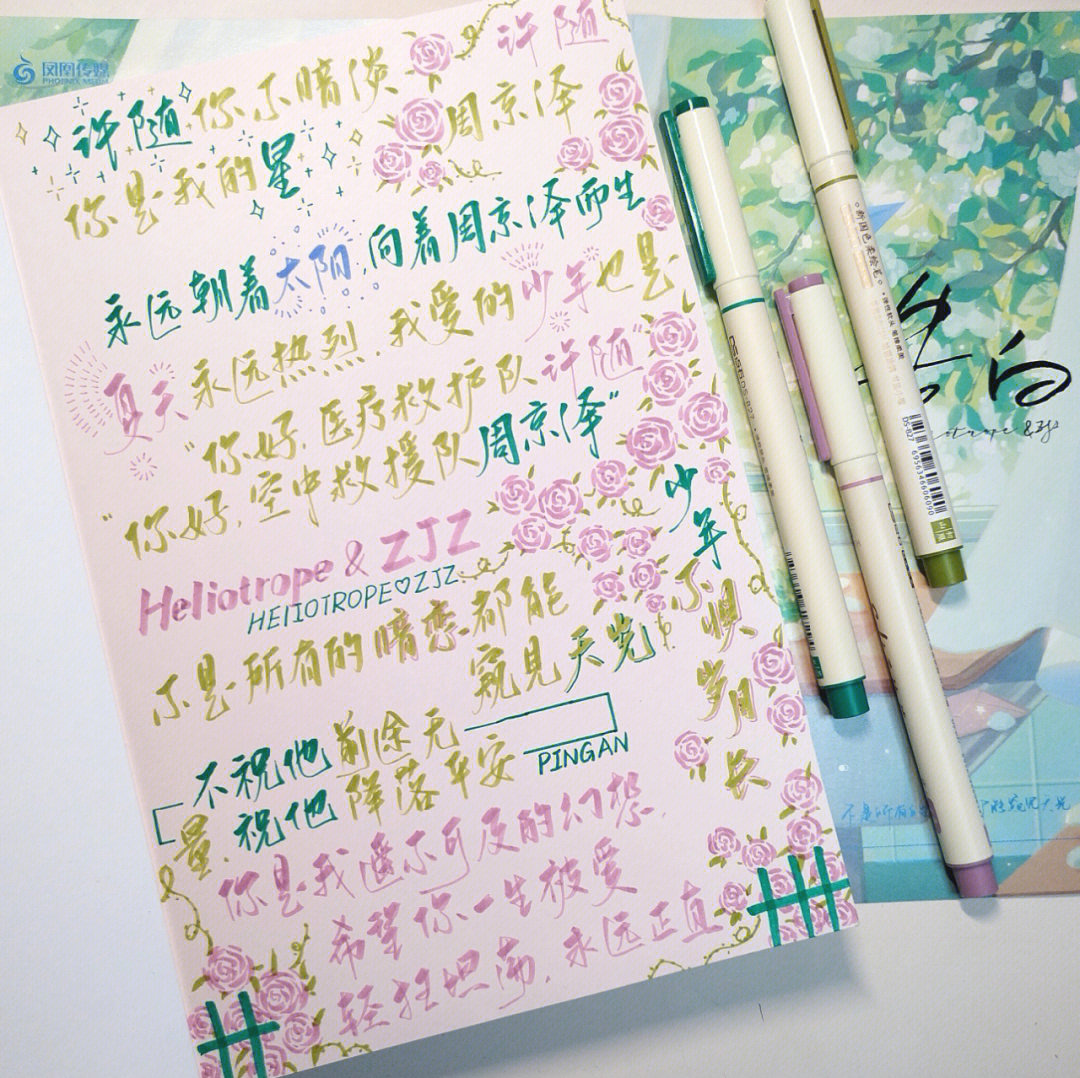 凤凰传媒
PHOENIX MEDIA
许随
许随你不暗淡
周京泽
你是我的星
永远朝着太阳,向着周京泽而生
夏天永远热烈,我爱的少年也是
"你好,医疗救护队许随"
"你好,空中救援队周京泽"
Heliotrope & ZJZ
HELIOTROPE♡ZJZ
不是所有的暗恋都能
窥见天光
少年不惧岁月长
不祝他前途无
量,祝他降落平安
PINGAN
你是我遥不可及的幻想,
希望你一生被爱
轻狂坦荡,永远正直
新国色柔绘笔
DS-027
6956346606090
告白
&ZJZ
不是所有的
窥见天光